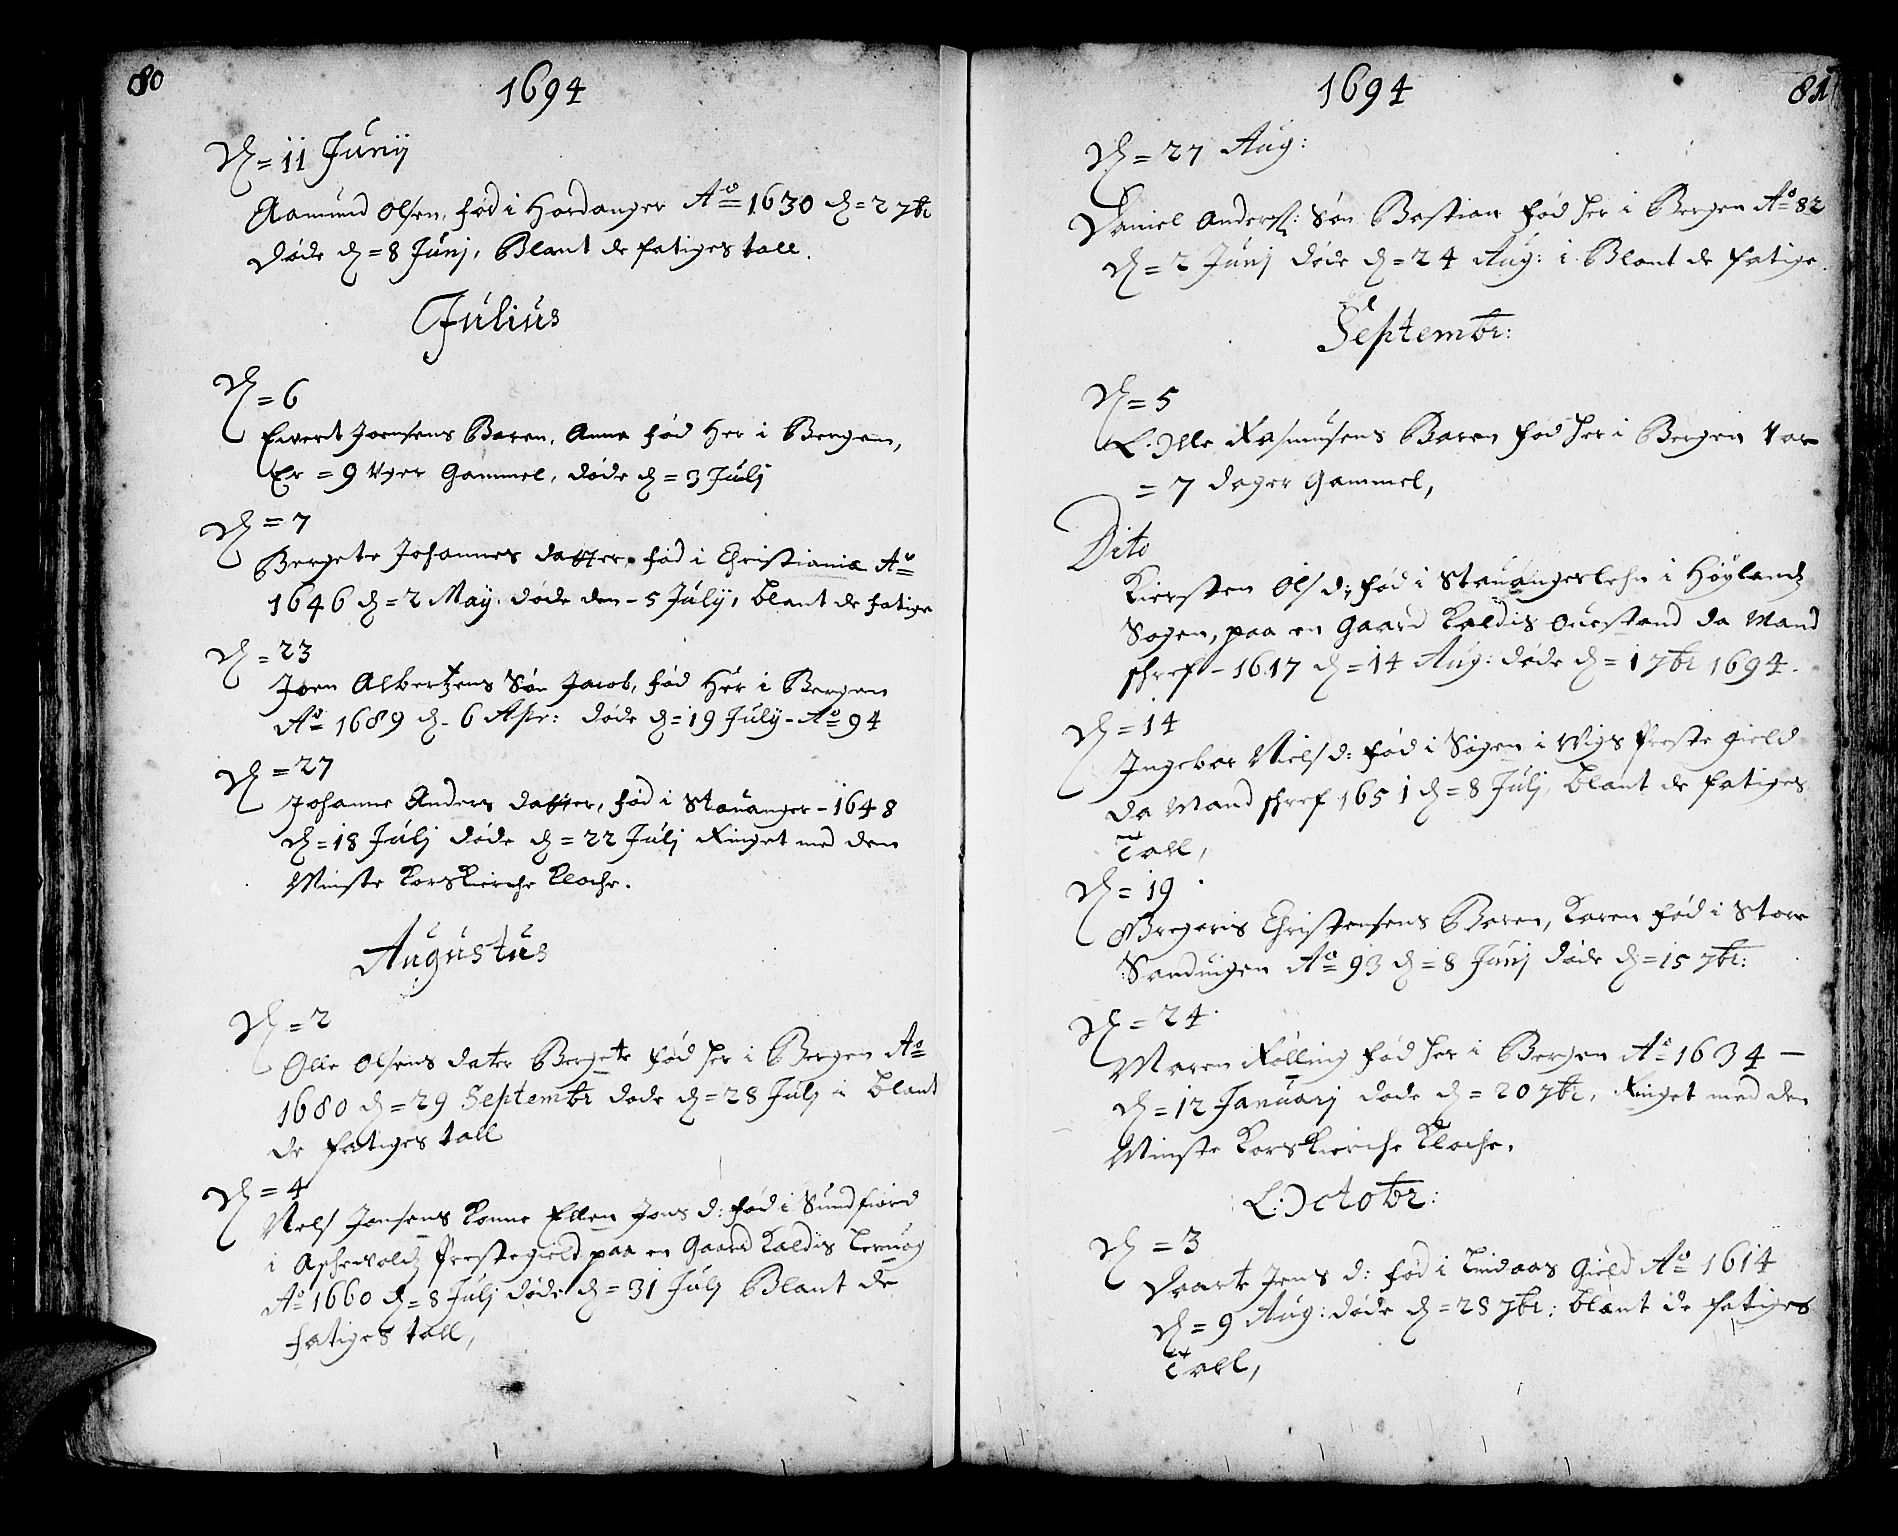 80
1694
D = 11 Junij
Aamund Olsen, fød i Hardanger Ao 1630 d = 2 7br
Døde d = 8 Junj, Blant de fatiges tall.
Julius
D = 6
Ewert Joensens Baren, Anne fød Her i Bergen,
Er = 9 Uger Gammel, døde d = 3 Julj
D = 7
Bergete Johannes datter, fød i Christiania Ao
1646 d = 2 May, døde den - 5 Julij, blant de fatige
D = 23
Joen Albertzens Søn Jacob, fød Her i Bergen
Ao 1689 d - 6 Apr: døde d = 19 Julij - Ao 94
D = 27
Johanne Anders datter, fød i Stauanger - 1648
d = 18 Julj døde d = 22 Julj Ringet med den
Minste Korskierche Kloche.
Augustus
D = 2
Olle Olsens dater Bergete fød her i Bergen Ao
1680 d = 29 Septembr døde d = 28 Julj i blant
de fatiges tall
D = 4
Nels Jonsens Konne Ellen Jons d: fød i Sundfiord
i Aschewoldz Prestegield paa en Gaard Kaldis
Ao 1660 d = 8 Julj døde d = 31 Julj Blant de
fatiges tall,
1694
81
D = 27 Aug:
Daniel Anders: Søn Bastian fød her i Bergen Ao 82
d = 2 Junj døde d = 24 Aug: i Blant de fatige.
Septembr:
D = 5
Olle Rasmusens Baren fød her i Bergen var
= 7 dager Gammel,
Dito
Kiersten Ols d: fød i Stauangerlehn i Høylandz
Sogen, paa en Gaard Kaldis Ouestand da Mand
schref - 1617 d = 14 Aug: døde d = 1 7br 1694.
D = 14
Ingebor Niels d: fød i Sogen i Wigs Preste gield
da Mand schref 1651 d = 8 Julj, blant de fatiges
Tall,
D = 19
Gregoris Christensens Baren, Karen fød i Store
Sanduigen Ao 93 d = 8 Junj døde d = 15 7br:
D = 24
Maren Rølling fød her i Bergen Ao 1634 -
d = 12 Januarj døde d = 20 7br, Ringet med den
Minste Korskierche Kloche.
October:
D = 3
Daarte Jens d: fød i Lindaas Gield Ao 1614
d = 9 Aug: døde d = 28 7br: blant de fatiges
Tall,